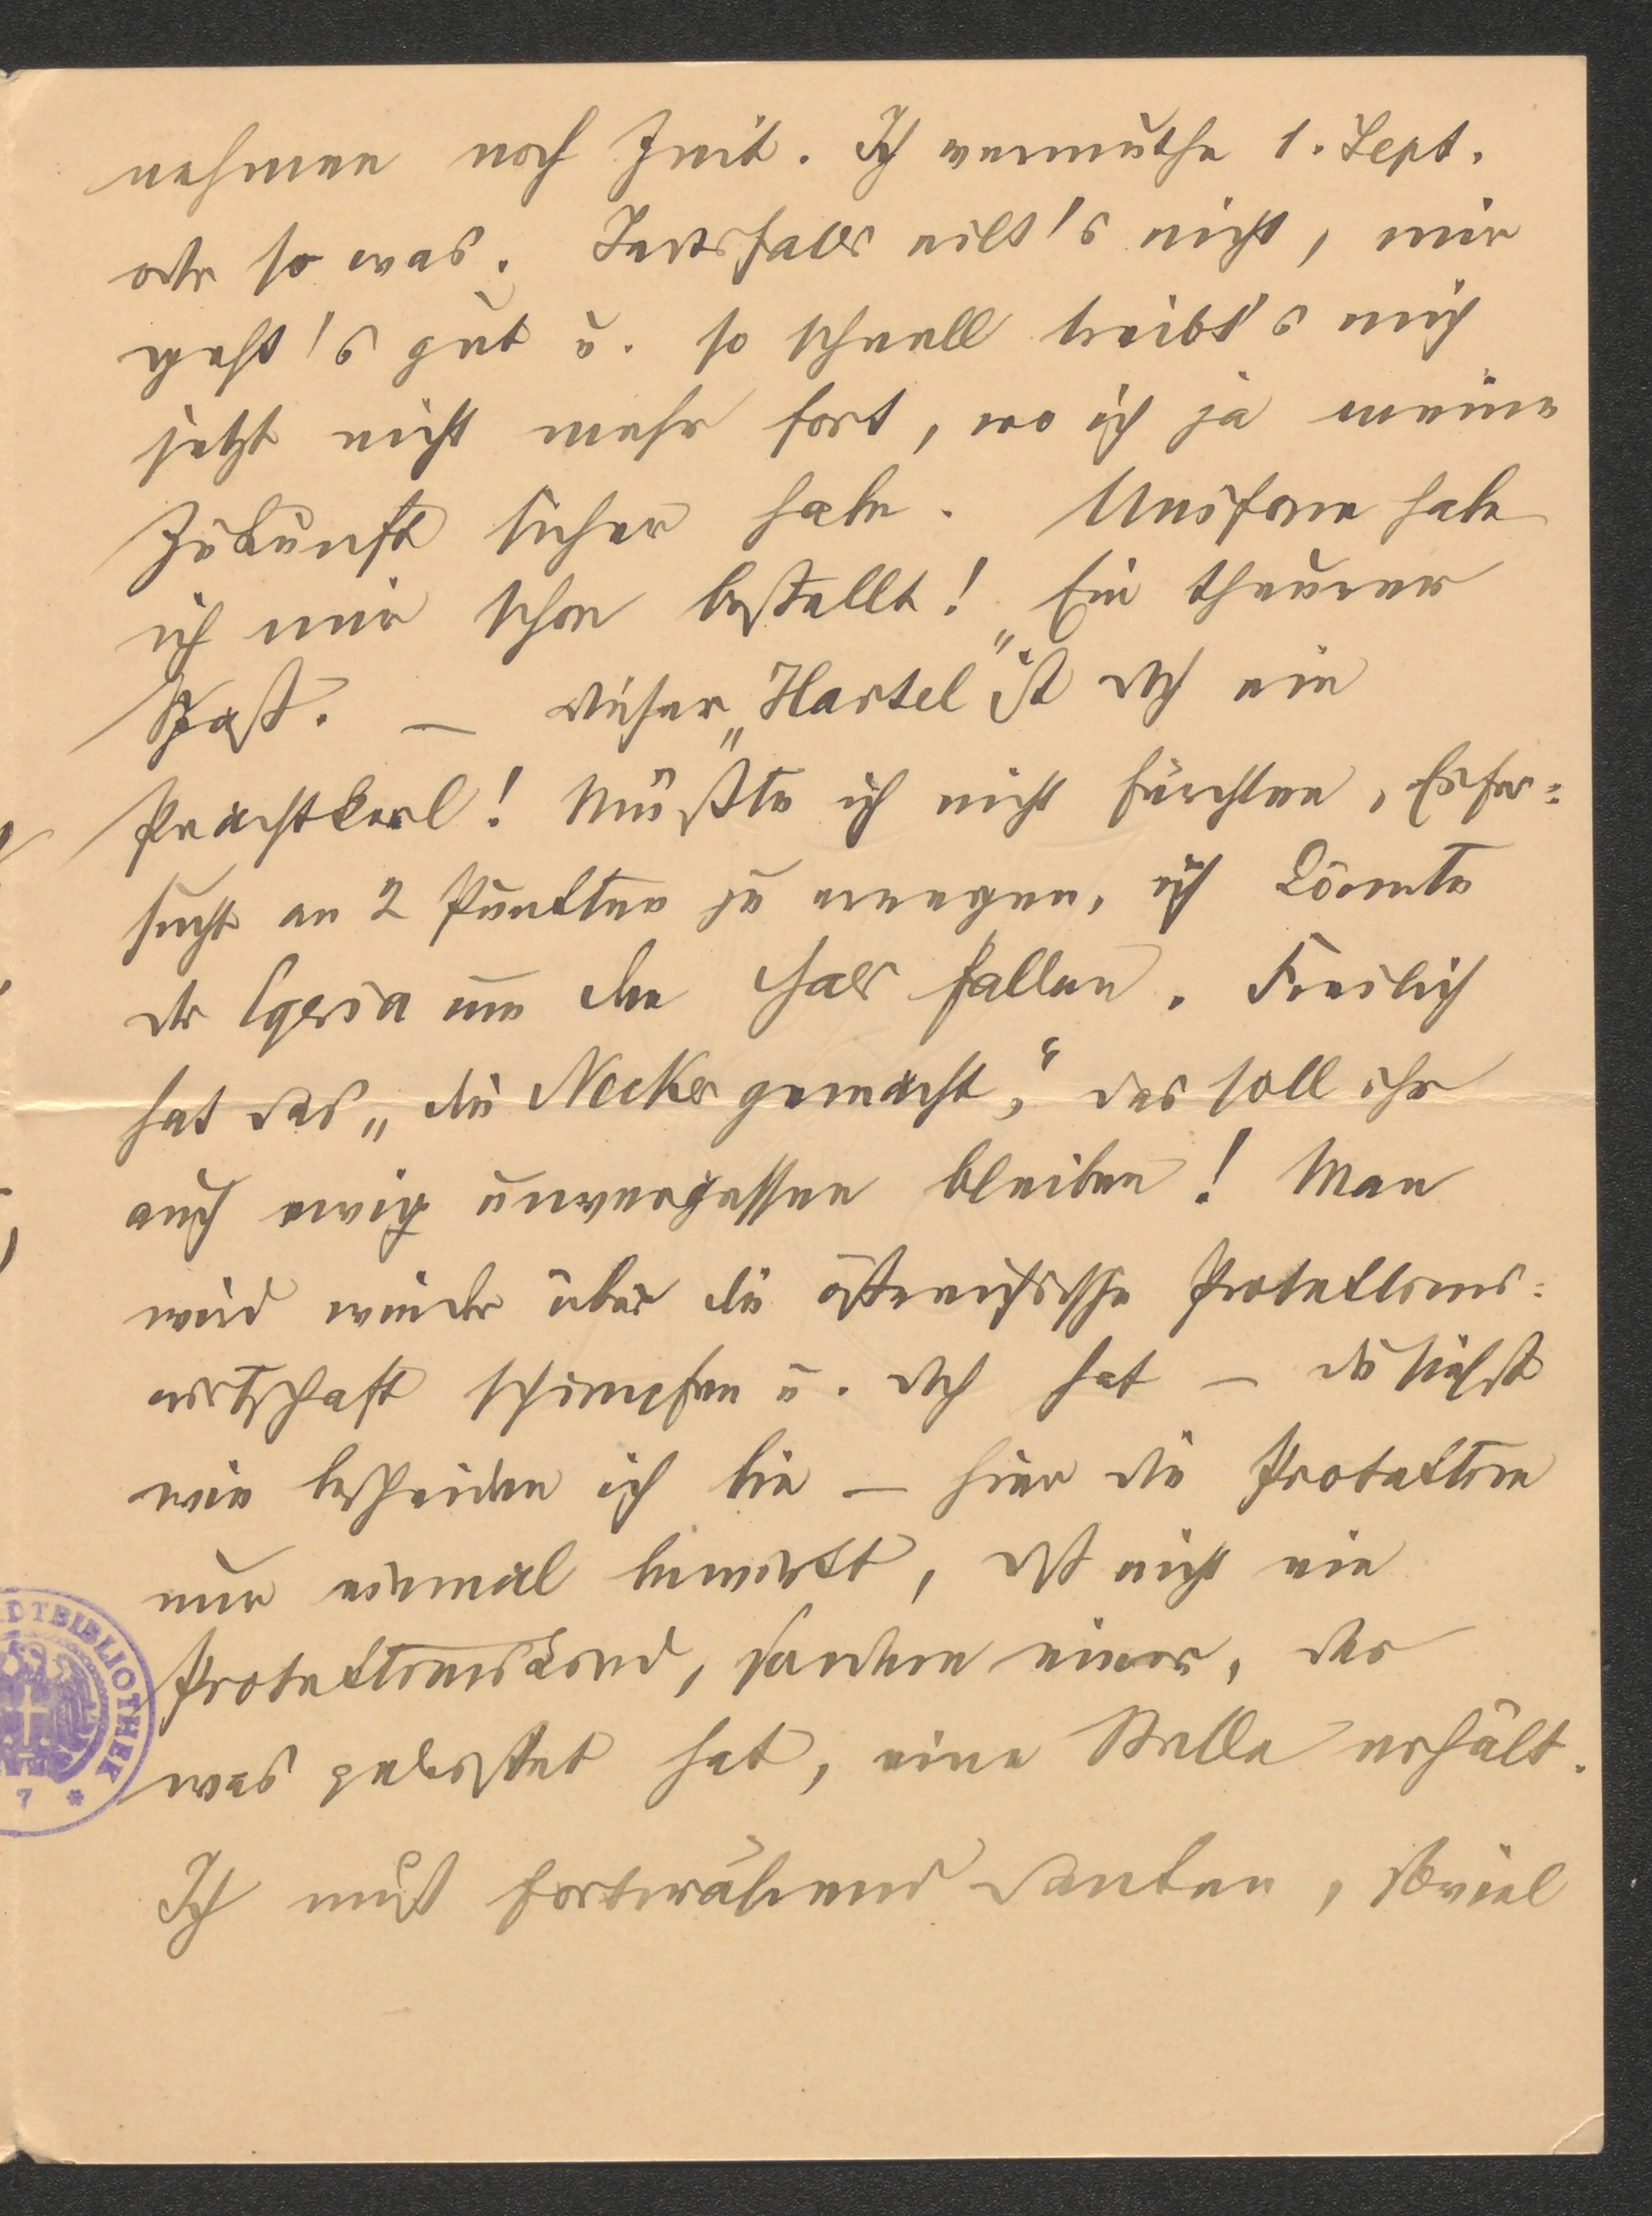 nehmen noch Zeit. Ich vermuthe 1. Sept.
oder so was. Jedesfalls eilt's nicht, mir
geht's gut u. so schnell treibt's mich
jetzt nicht mehr fort, wo ich ja meine
Zukunft sicher habe. Uniform habe
ich mir schon bestellt! Ein theurer
Spaß. — Dieser „Hartel“ ist doch ein
Prachtkerl! Müßte ich nicht fürchten, Eifer=
sucht an 2 Punkten zu erregen, ich könnte
der Egeria um den Hals fallen. Freilich
hat das „die Necker gemacht“, das soll ihr
auch ewig unvergessen bleiben! Man
wird wieder über die österreichische Protektions=
wirtschaft schimpfen u. doch hat – du siehst
wie bescheiden ich bin – hier die Protektion
nur einmal bewirkt, daß nicht ein
Protektionskind, sondern einer, der
was geleistet hat, eine Stelle erhält.
Ich muß fortwährend danken, soviel
DTBIBLIOTHEK
7 *